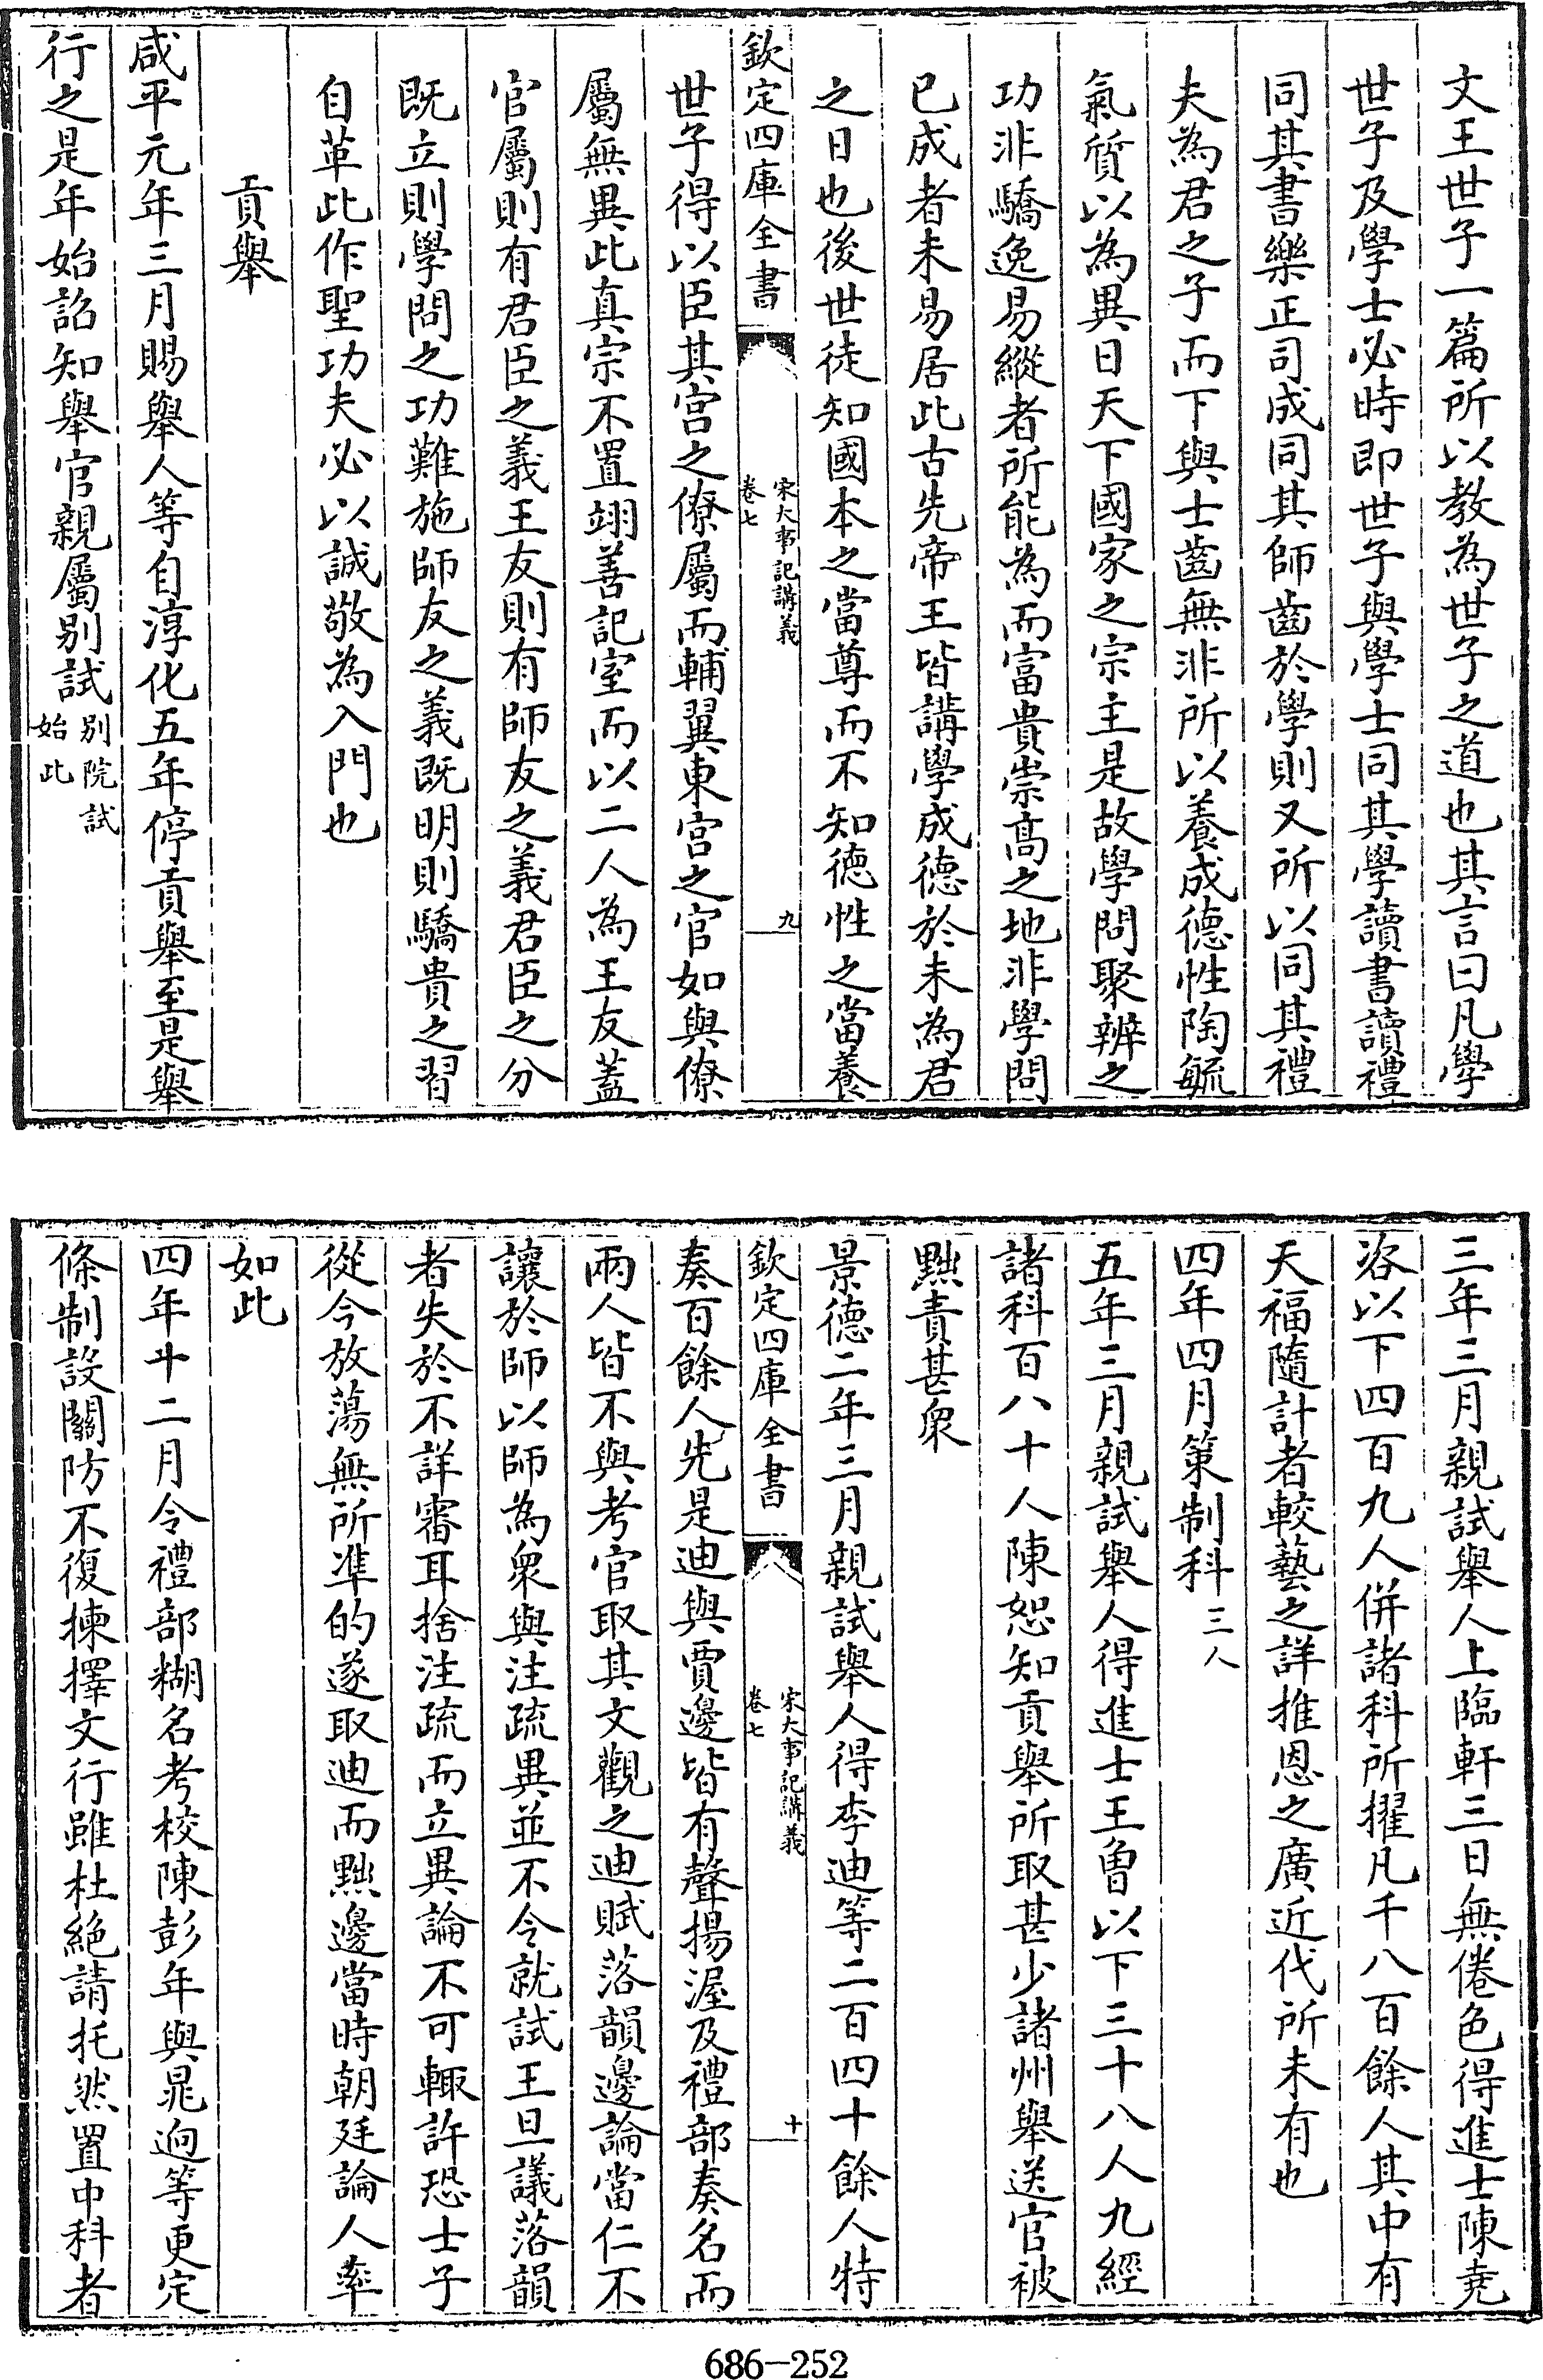 文王世子一篇所以教為世子之道也其言曰凡學
世子及學士必時即世子與學士同其學讀書讀禮
同其書樂正司成同其師齒於學則又所以同其禮
夫為君之子而下與士齒無非所以養成德性陶毓
氣質以為異日天下國家之宗主是故學問聚辨之
功非驕逸易縱者所能為而富貴崇高之地非學問
已成者未易居此古先帝王皆講學成德於未為君
之日也後世徒知國本之當尊而不知德性之當養
欽定四庫全書
宋大事記講義
卷七
九
世子得以臣其宫之僚屬而輔翼東宫之官如與僚
屬無異此真宗不置翊善記室而以二人為王友蓋
官屬則有君臣之義王友則有師友之義君臣之分
既立則學問之功難施師友之義既明則驕貴之習
自革此作聖功夫必以誠敬為入門也
貢舉
咸平元年三月賜舉人等自淳化五年停貢舉至是舉
行之是年始詔知舉官親屬别試别院試始此
三年三月親試舉人上臨軒三日無倦色得進士陳堯
洛以下四百九人併諸科所擢凡千八百餘人其中有
天福隨計者較藝之詳推恩之廣近代所未有也
四年四月策制科三人
五年三月親試舉人得進士王曾以下三十八人九經
諸科百八十人陳恕知貢舉所取甚少諸州舉送官被
黜責甚衆
景德二年三月親試舉人得李迪等二百四十餘人特
欽定四庫全書
宋大事記講義
卷七
十
奏百餘人先是迪與賈邊皆有聲揚渥及禮部奏名而
兩人皆不與考官取其文觀之迪賦落韻邊論當仁不
讓於師以師為衆與注疏異並不令就試王旦議落韻
者失於不詳審耳捨注疏而立異論不可輙許恐士子
從今放蕩無所準的遂取迪而黜邊當時朝廷論人率
如此
四年十二月令禮部糊名考校陳彭年與晁迥等更定
條制設關防不復揀擇文行雖杜絶請托然置中科者
686-252